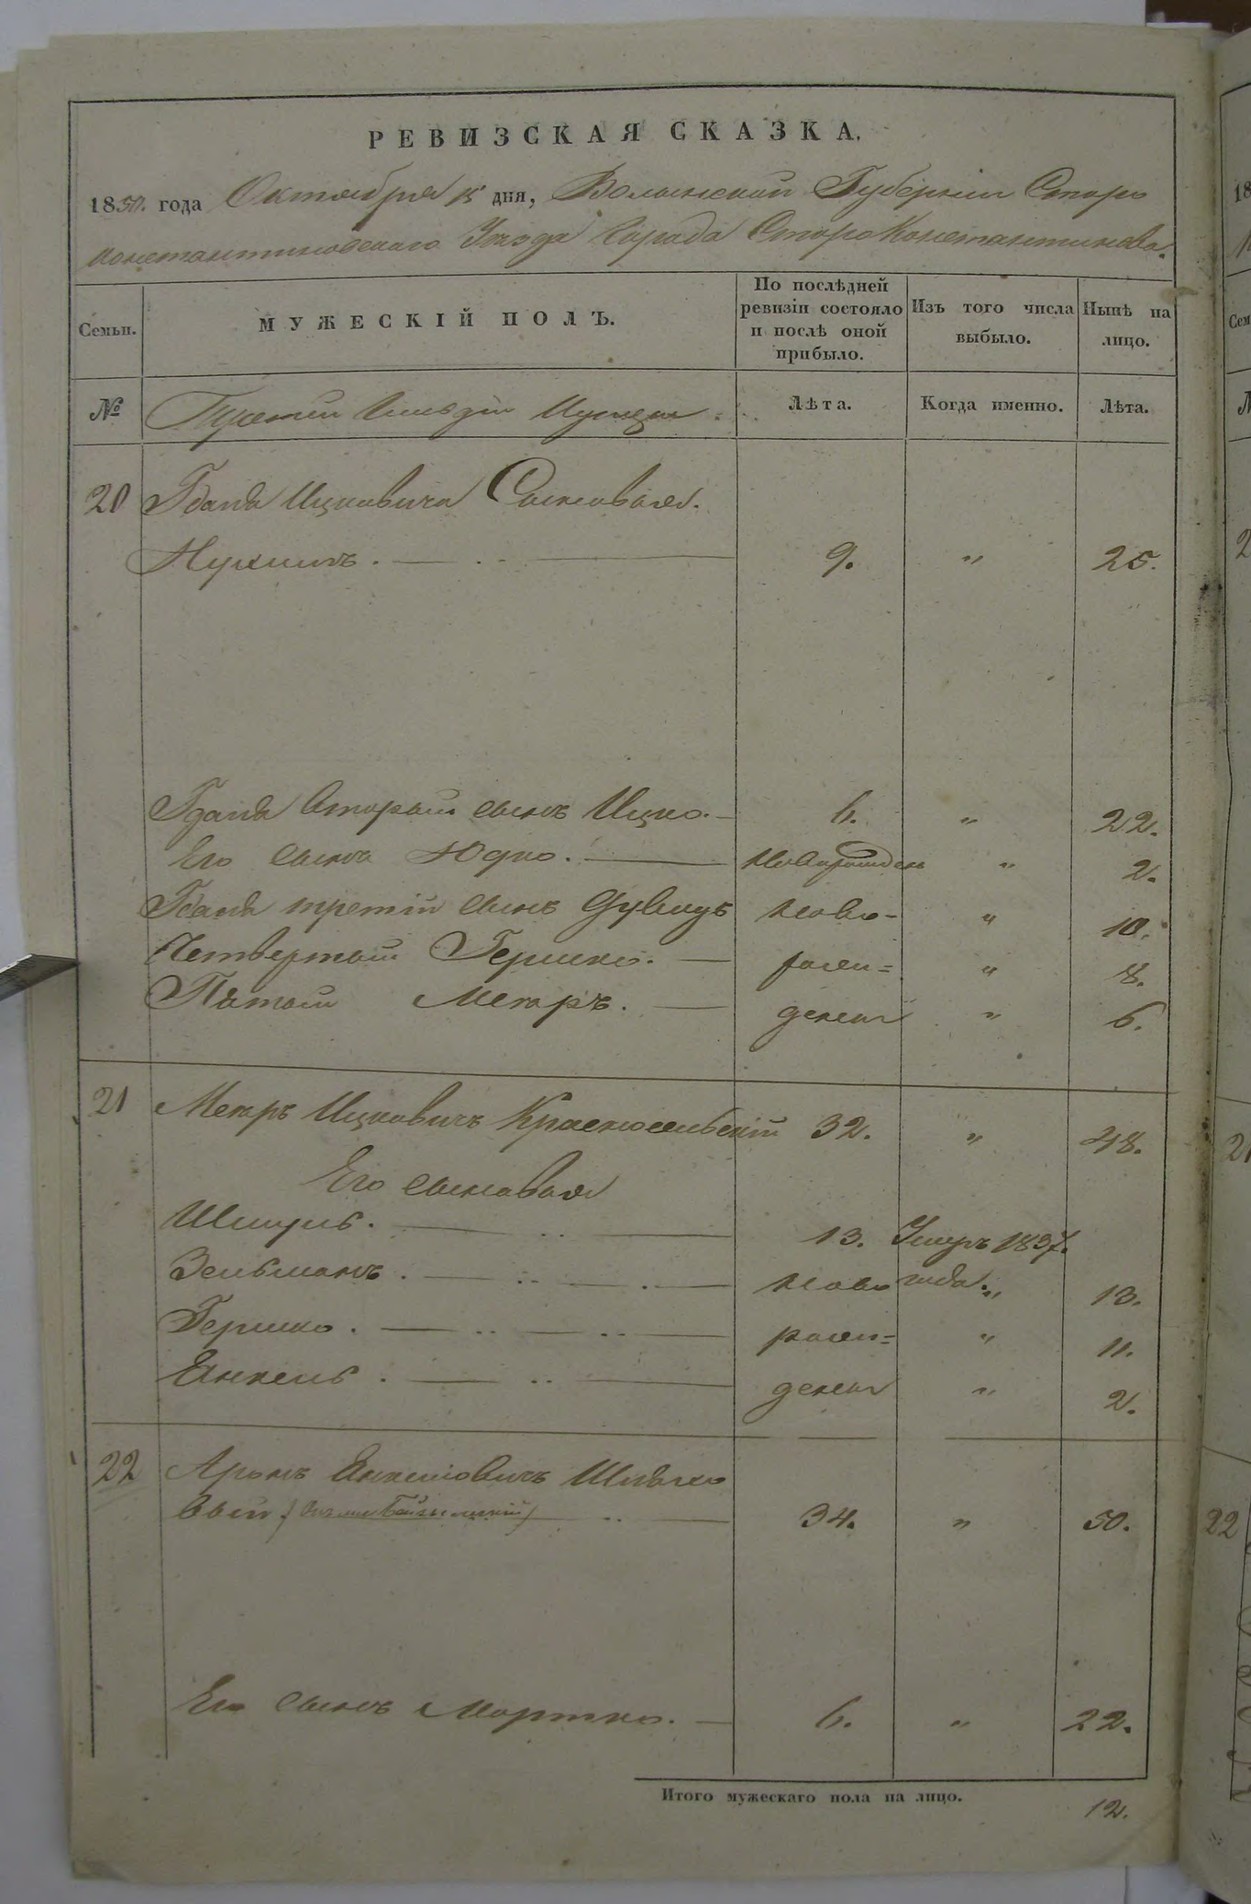 РЕВИЗСКАЯ СКАЗКА.
1850. года Октября 15 дня, Волынской Губерніи Старо
константиновскаго Уезда Города Староконстантинова.
Семьи.
МУЖЕСКІЙ ПОЛЪ.
По послѣдней ревизіи состояло и послѣ оной прибыло.
Изъ того числа выбыло.
Нынѣ на лицо.
№
Третій
Лѣта.
Когда именно.
Лѣта.
20 Ицковича Сыновья.
Нухимъ. 9. " 25.
Второй сынъ Ицко. 6. " 22.
Его сынъ Юдко. Новорожденъ " 2.
третій сынъ Дувидъ ново- " 10.
Четвертый Гершко. рожд= " 8.
Пятый Меяръ. деные " 6.
21 Меяръ Ицковичъ Красносельскій 32. " 48.
Его сыновья
Шмуль. 13. Умеръ 1837.
Зельманъ. ново года. " 13.
Гершко. рожд= " 11.
Янкель. деные " 2.
22 Аронъ Янкелевичъ
вый 34. " 50.
Его сынъ Мортко. 6. " 22.
Итого мужескаго пола на лицо. 12.
22